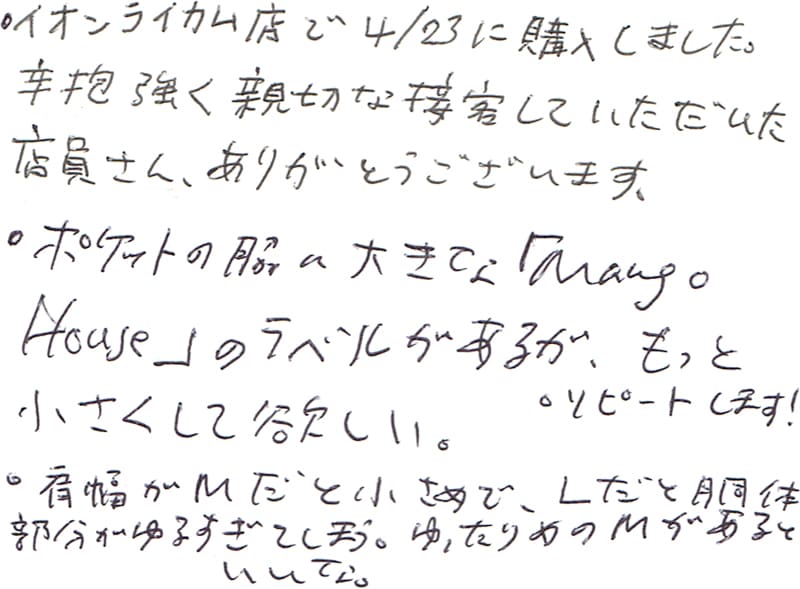 ・イオンライカム店で4/23に購入しました。
辛抱強く親切な接客していただいた
店員さん、ありがとうございます、
・ポケットの脇に大きな「Mango
House」のラベルがあるが、もっと
小さくして欲しい。
・リピートします!
・肩幅がMだと小さめで、Lだと胴体
部分がゆるすぎてしまう。ゆったりめのMがあると
いいな。